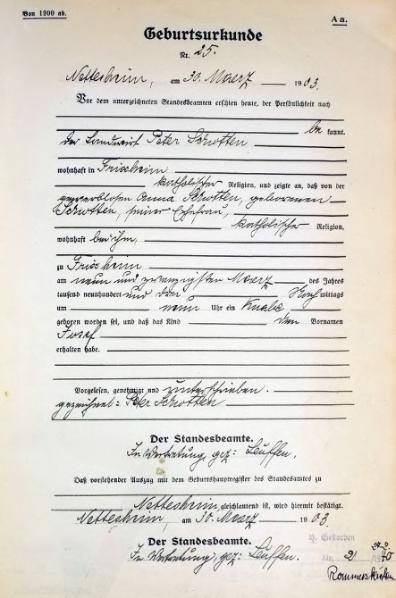 Von 1900 ab.
A a.
Geburtsurkunde
Nr. 25.
Nettesheim, am 30. Maerz 1903.
Vor dem unterzeichneten Standesbeamten erschien heute, der Persönlichkeit nach
be kannt,
der Landwirt Peter Schotten,
wohnhaft in Frixheim
katholischer Religion, und zeigte an, daß von der
gewerblosen Anna Schotten, geborenen
Schotten, seiner Ehefrau,
katholischer Religion,
wohnhaft bei ihm,
zu Frixheim
am neun und zwanzigsten Maerz des Jahres
tausend neunhundert und drei Nach mittags
um neun Uhr ein Knabe
geboren worden sei, und daß das Kind den Vornamen
Josef
erhalten habe.
Vorgelesen, genehmigt und unterschrieben.
gezeichnet: Peter Schotten
Der Standesbeamte.
In Vertretung, gez:
Daß vorstehender Auszug mit dem Geburtshauptregister des Standesamtes zu
Nettesheim gleichlautend ist, wird hiermit bestätigt.
Nettesheim, am 30. Maerz 1903.
Der Standesbeamte.
In Vertretung, gez:
Gestorben
Rommerskirchen